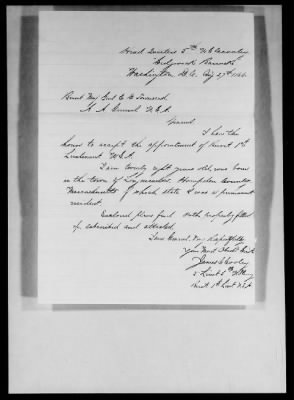 Head Quarters 5th U.S. Cavalry
Sedgwick Barracks
Washington D.C. Aug 27th 1866
Brevt Maj Genl E. D. Townsend
A. A. General U.S.A.
General
I have the
honor to accept the appointment of Brevt 1st
Lieutenant U.S.A.
I am twenty eight years old, was born
in the town of Longmeadow Hampden County
Massachusetts of which state I was a permanent
resident.
Enclosed please find Oath properly filled
up subscribed and attested.
I am General, Very Respectfully
Your Most Obedt Servt
James C. Cooley
2 Lieut 5th
Brevt 1st Lieut U.S.A.